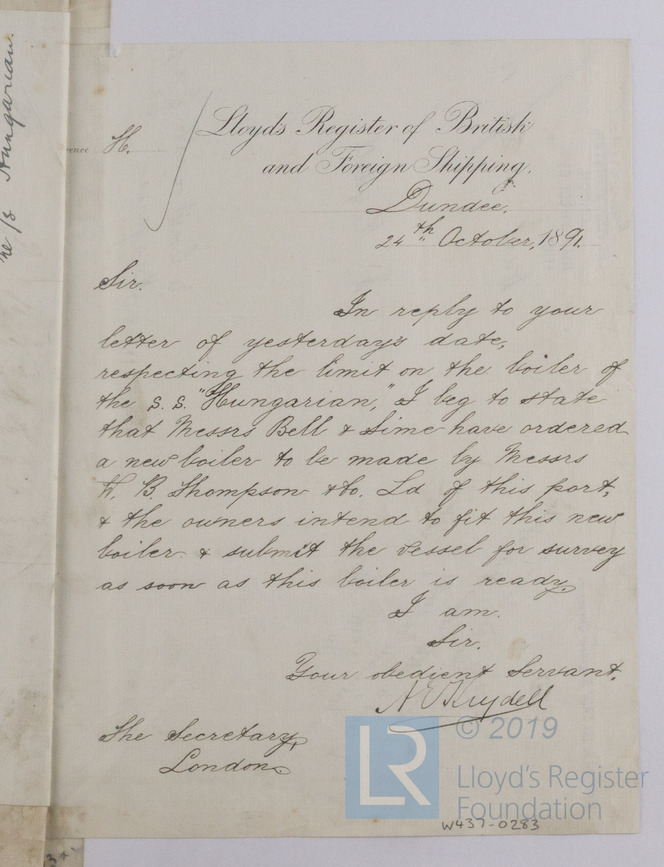 Hungarian.
H.
Lloyd's Register of British
and Foreign Shipping.
Dundee.
24th October, 1891.
Sir.
In reply to your
letter of yesterday's date,
respecting the limit on the boiler of
the S. S. "Hungarian," I beg to state
that Messrs Bell & Sime have ordered
a new boiler to be made by Messrs
W. B. Thompson & Co. Ld of this port,
& the owners intend to fit this new
boiler & submit the vessel for survey
as soon as this boiler is ready
I am.
Sir.
Your obedient Servant.
The Secretary,
London.
LR
© 2019
Lloyd's Register
Foundation
W437-0283